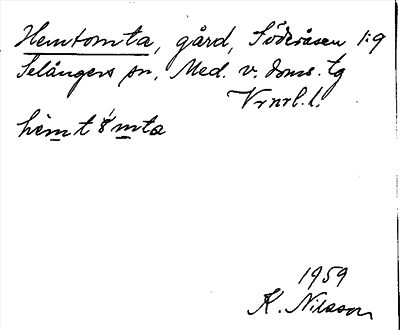 Hemtomta, gård, Söderåsen 1:9
Selångers sn, Med. v. doms. tg
Vrnrl. l.
hèmtómta
1959
K. Nilsson